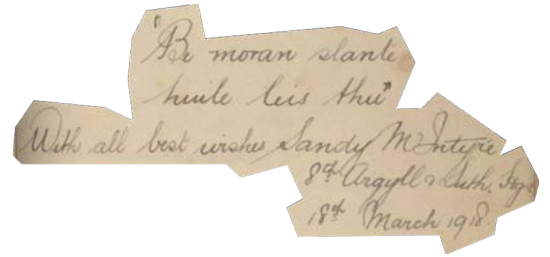 "Bi moran slante
huile leis thu"
With all best wishes Sandy McIntyre
8th Argyll & Suth. Hgs
18th March 1918